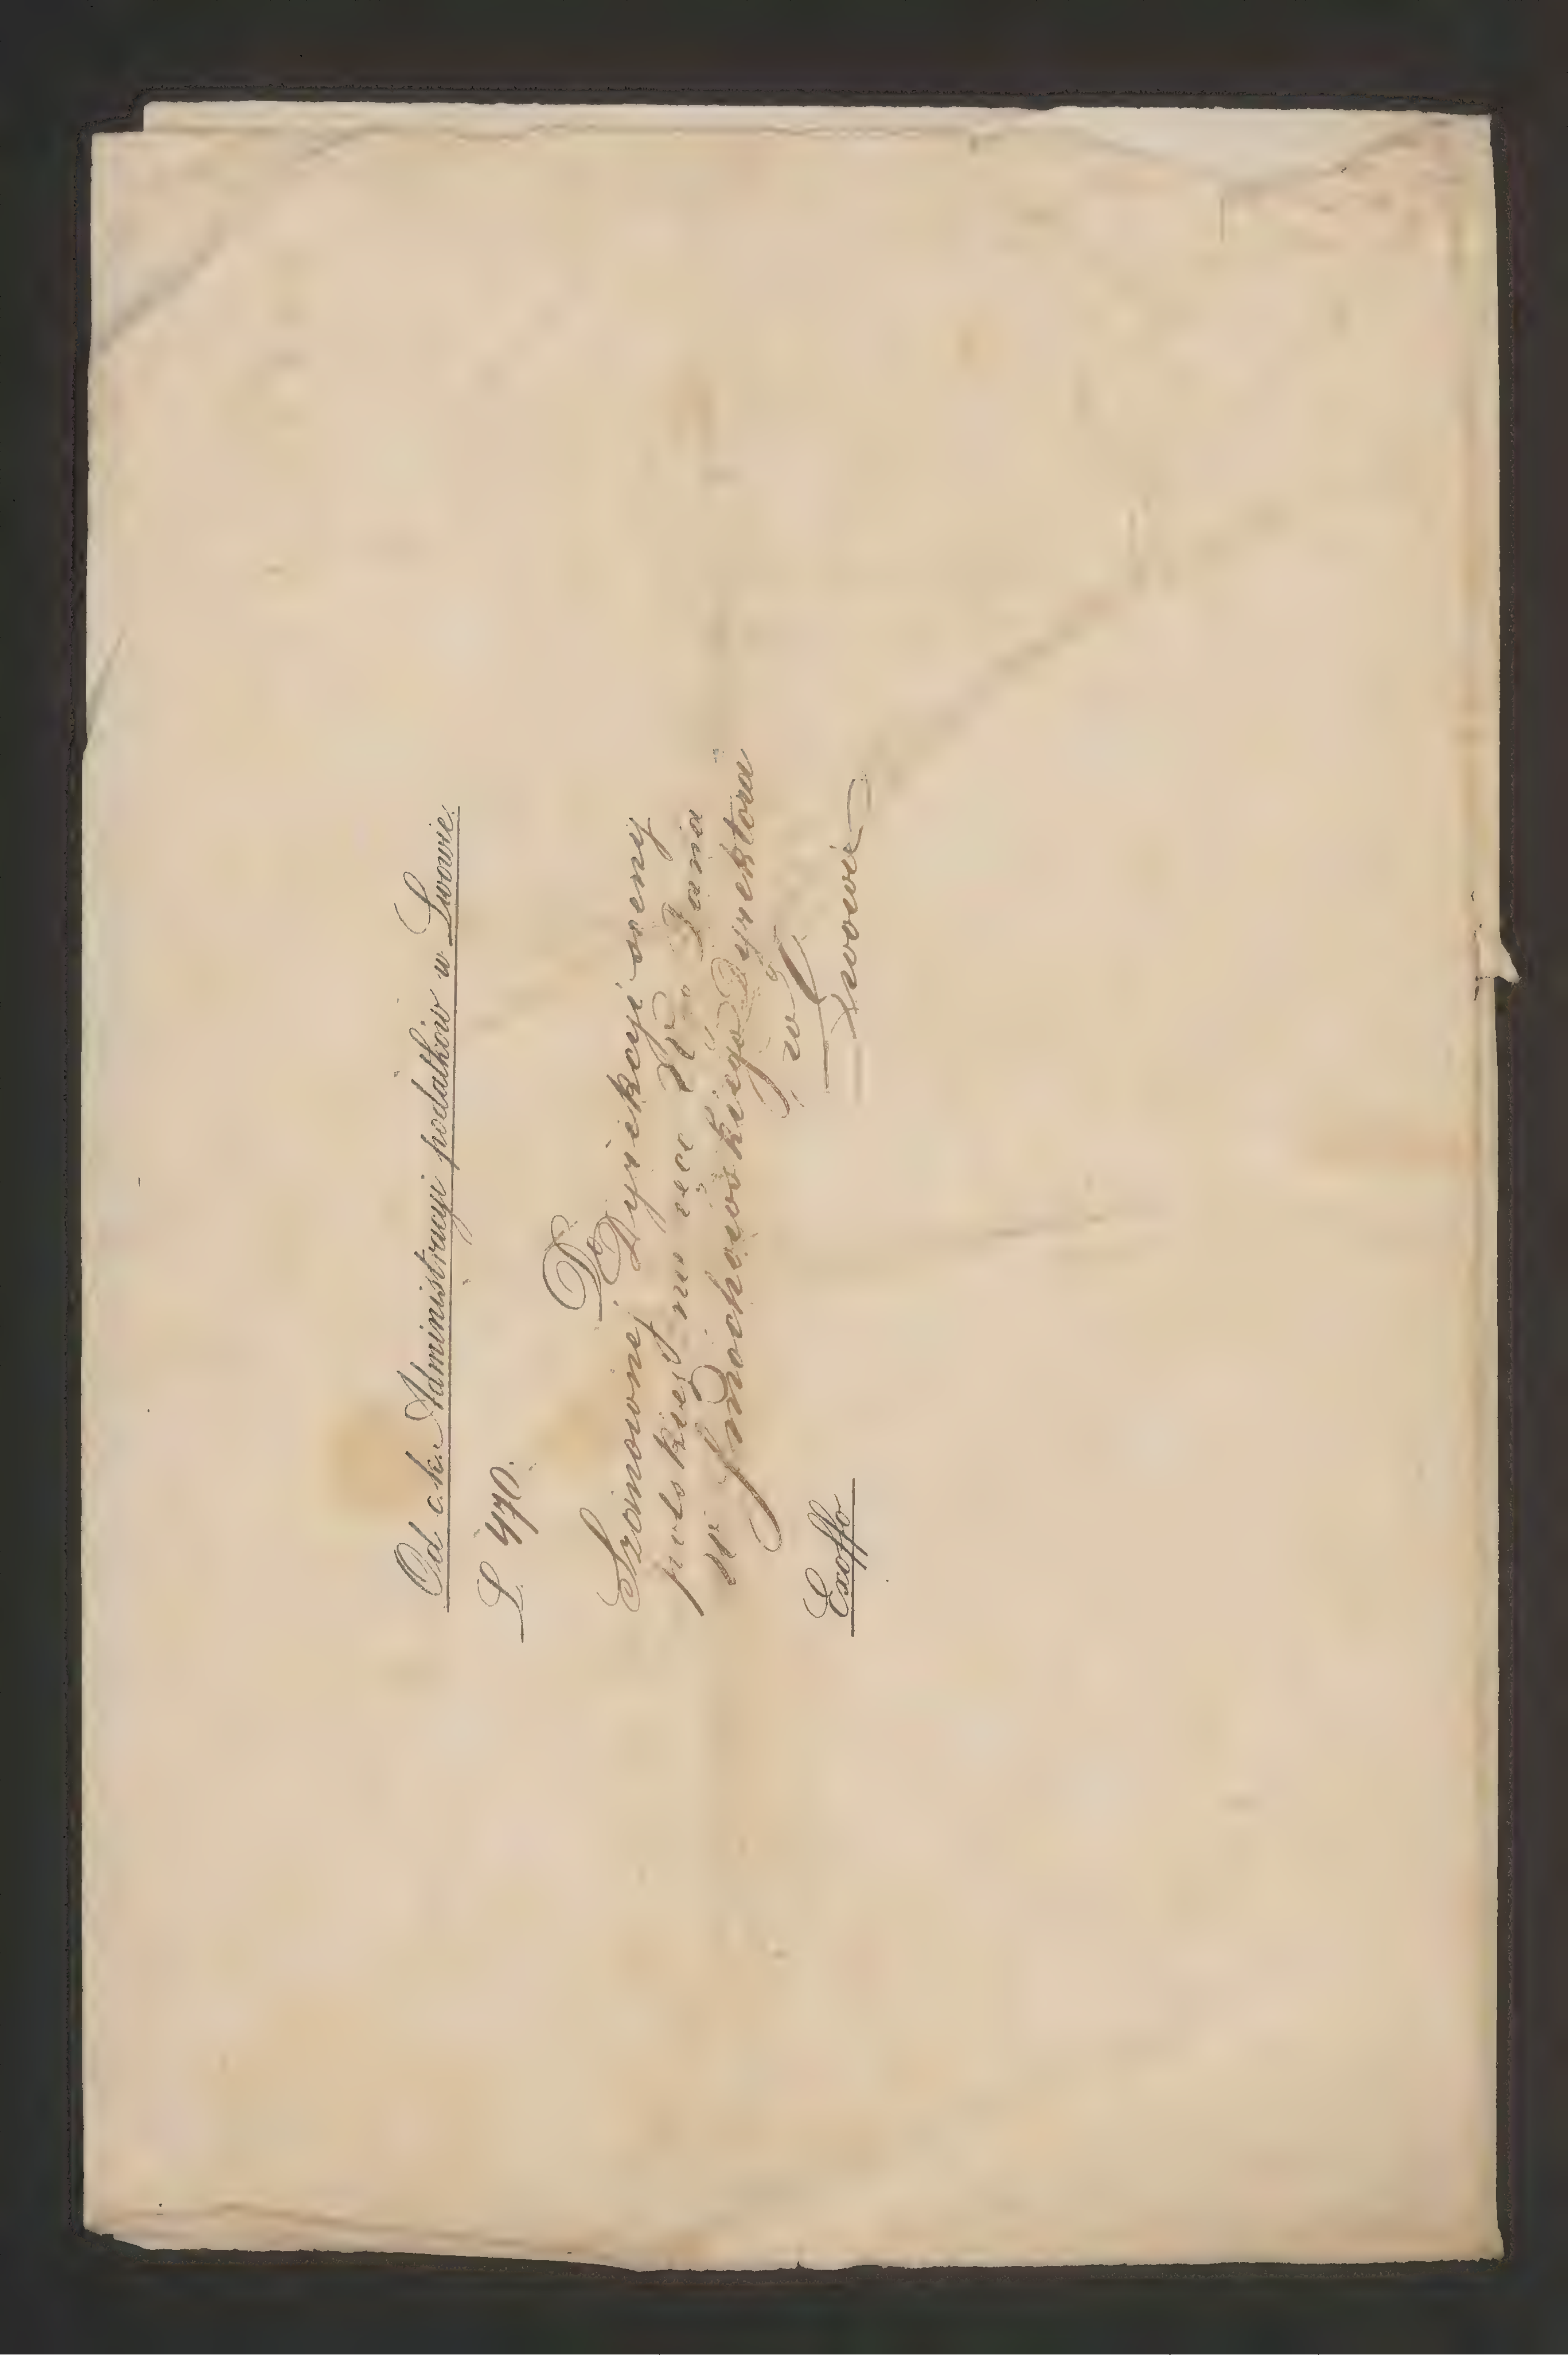 Od c. k. Administracyi podatków w Lwowie.
L. 470.
Do
Szanownej Dyrekcyi sceny
polskiej na ręce W. Pana
W Smochowskiego Dyrektora
w
Lwowie
Exoffo